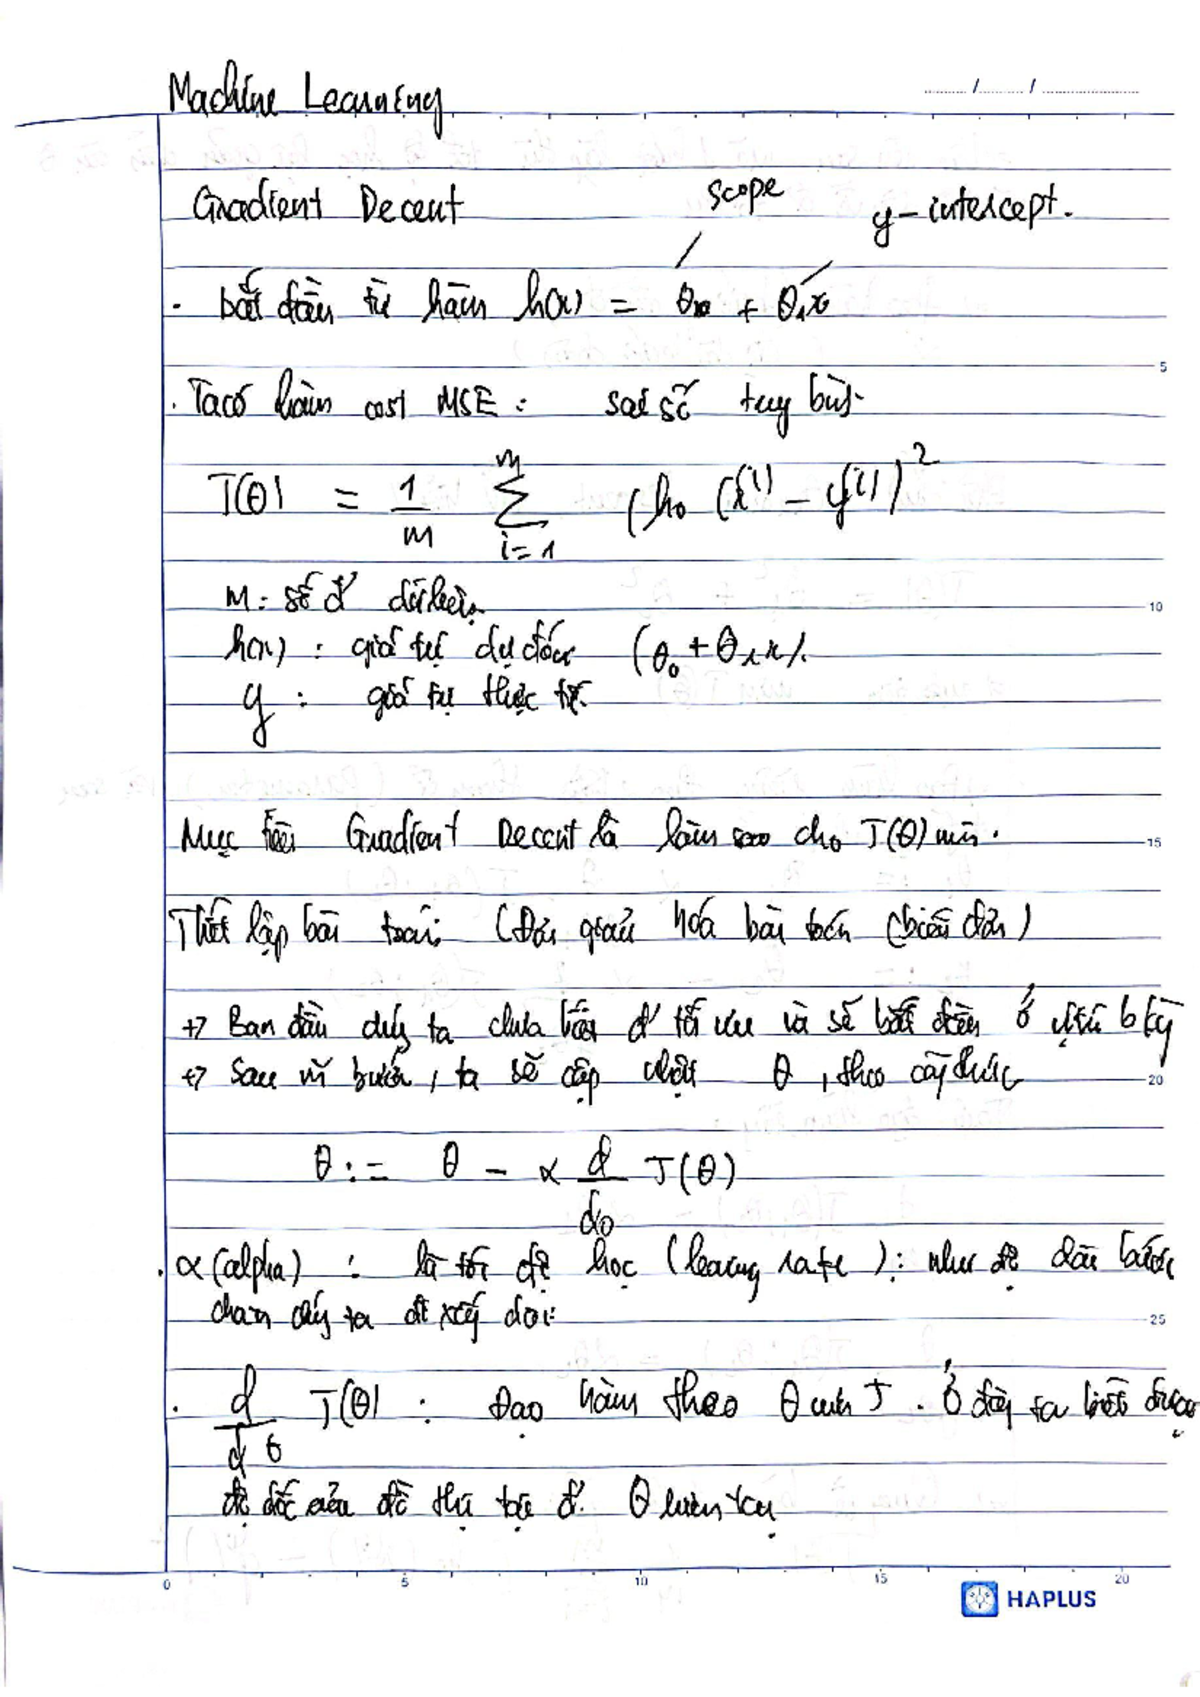 Machine Learning
Gradient Decent
scope
y-intercept.
. bắt đầu từ hàm h(x) = θ₀ + θ₁x
. Ta có hàm cost MSE : sai số
J(θ) = 1/m Σ i=1 m (hθ (x⁽ⁱ⁾ - y⁽ⁱ⁾)²
m : số đ' dữ liệu
h(x) : giá trị dự đoán (θ₀ + θ₁x).
y : giá trị thực tế.
Mục tiêu Gradient Decent là làm sao cho J(θ) min.
Thiết lập bài toán: (Đơn giản hoá bài toán (
+> Ban đầu ta chưa biết đ' tối ưu và sẽ bắt đầu ở vị trí b kỳ
+> Sau mỗi bước, ta sẽ cập nhật θ, theo công thức
θ := θ - α d/dθ J(θ)
. α (alpha) : là tốc độ học (learing rate) : như độ dài bước
chân ta đi
. d/dθ J(θ) : Đạo hàm theo θ của J. Ở đây ta biết được
độ dốc của đồ thị tại đ' θ hiện tại
0 5 10 15 20
5
10
15
20
25
HAPLUS